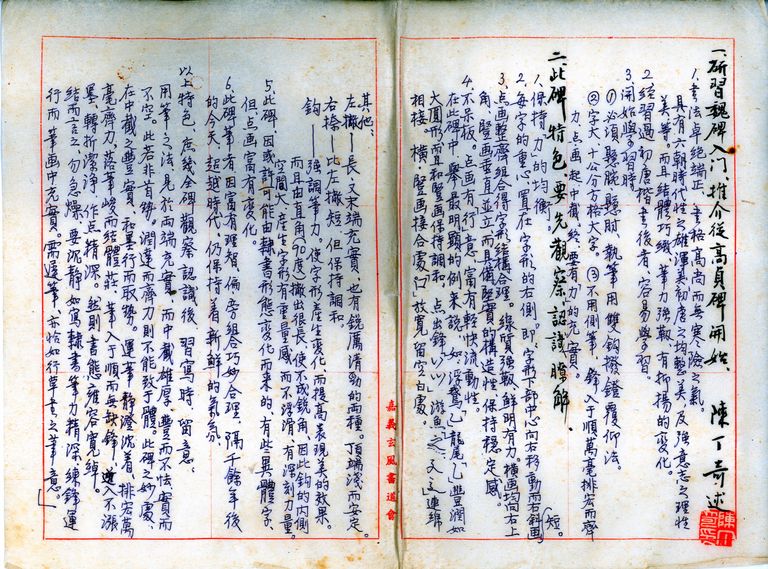 一、研習魏碑入門、推介從高貞碑開始、 陳丁奇述
1. 書法卓絕端正、書格高尚而無寒險之氣、
具有六朝時代性之雄渾美初唐之均整美、及強意志之理性
美等。而且結體巧緻、筆力強靱、有抑揚的變化。
2. 經習過初唐楷書後者、容易學習。
3. 開始學習時、
① 必須懸腕懸肘 執筆用雙鈎撥鐙覆仰法。
② 字大十公分方格大字。 ③ 不用側筆、鋒入于順萬毫排宏而齊
力、點画起中截終、要有力的充實、
二、此碑特色、要先觀察認識瞭解、
1. 保持力的均衡。
2. 每字的重心、置在字形的右側。即、字形下部中心向右移動而右斜画(短。
3. 点画整齊組合得字形結構合理。線質強靱鮮明有力、橫画均向右上
角、豎画垂直並立、而具備堅實的構造性、保持穩定感。
4. 不呆板。点画有行意、富有輕快流動性。
在此碑中舉最明顯的例來說、如浮鵞、龍尾、豐潤如
大圓形而且和豎画保持調和、点出鋒、游魚、之、天、連綿
相接、橫、豎画接合處、放寬留空白處。
其他:
左撇——長、又末端充實、也有銳厲清勁的兩種。頂端淺而安定。
右捺——比左撇短、但保持調和。
鈎——強調筆力。使字形產生變化、而提高表現美的效果。
而且由直角(90度)撇出很長、使不成銳角、因此鈎的內側
空間大、產生字形有重量感、而不浮滑、有深刻力量。
5. 此碑、因或許可能由隸書形態變化而來的、有些異體字、
但点画富有變化。
6. 此碑筆者、因富有理智、偏旁組合巧妙合理、隔千餘年後
的今天、超越時代、仍保持着新鮮的氣氛。
以上特色、庶幾全碑觀察認識後、習寫時、留意、
用筆之法、見於兩端充實、而中截雄厚、豐而不怯、實而
不空、此若非首勢。潤遲而齊力則不能致于體。此碑之妙處、
在中截之豐實、和畢行而取勢。運筆靜澄沈着、排宏萬
毫齊力、落筆峻而結體莊、筆入于順而每缺鋒、遊入不漲
墨、轉折潔淨、作点精深。然則書態雍容寬綽。
結而言之、勿急燥、要沉靜如寫隸書筆力精深、練鋒運
行而筆画中充實。需遲筆、亦恰如行草書之筆意。
嘉義玄風書道會